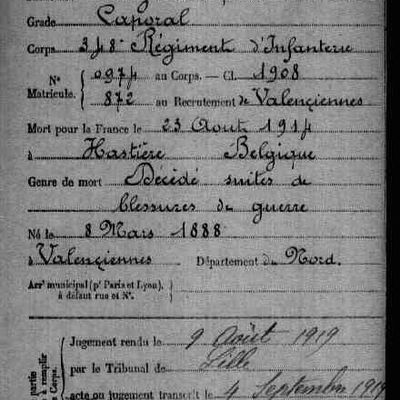 Grade Caporal
Corps 348e Régiment d'Infanterie
Nº 0974 au Corps. — Cl. 1908
Matricule. 872 au Recrutement de Valençiennes
Mort pour la France le 23 Aout 1914
à Hastière Belgique
Genre de mort Décidé suites de
blessures de guerre
Né le 8 Mars 1888
à Valençiennes Département du Nord.
Arr' municipal (p' Paris et Lyon),
à défaut rue et Nº.
Jugement rendu le 9 Août 1919
par le Tribunal de Lille
acte ou jugement transcrit le 4 Septembre 1919
partie
à remplir
Corps.